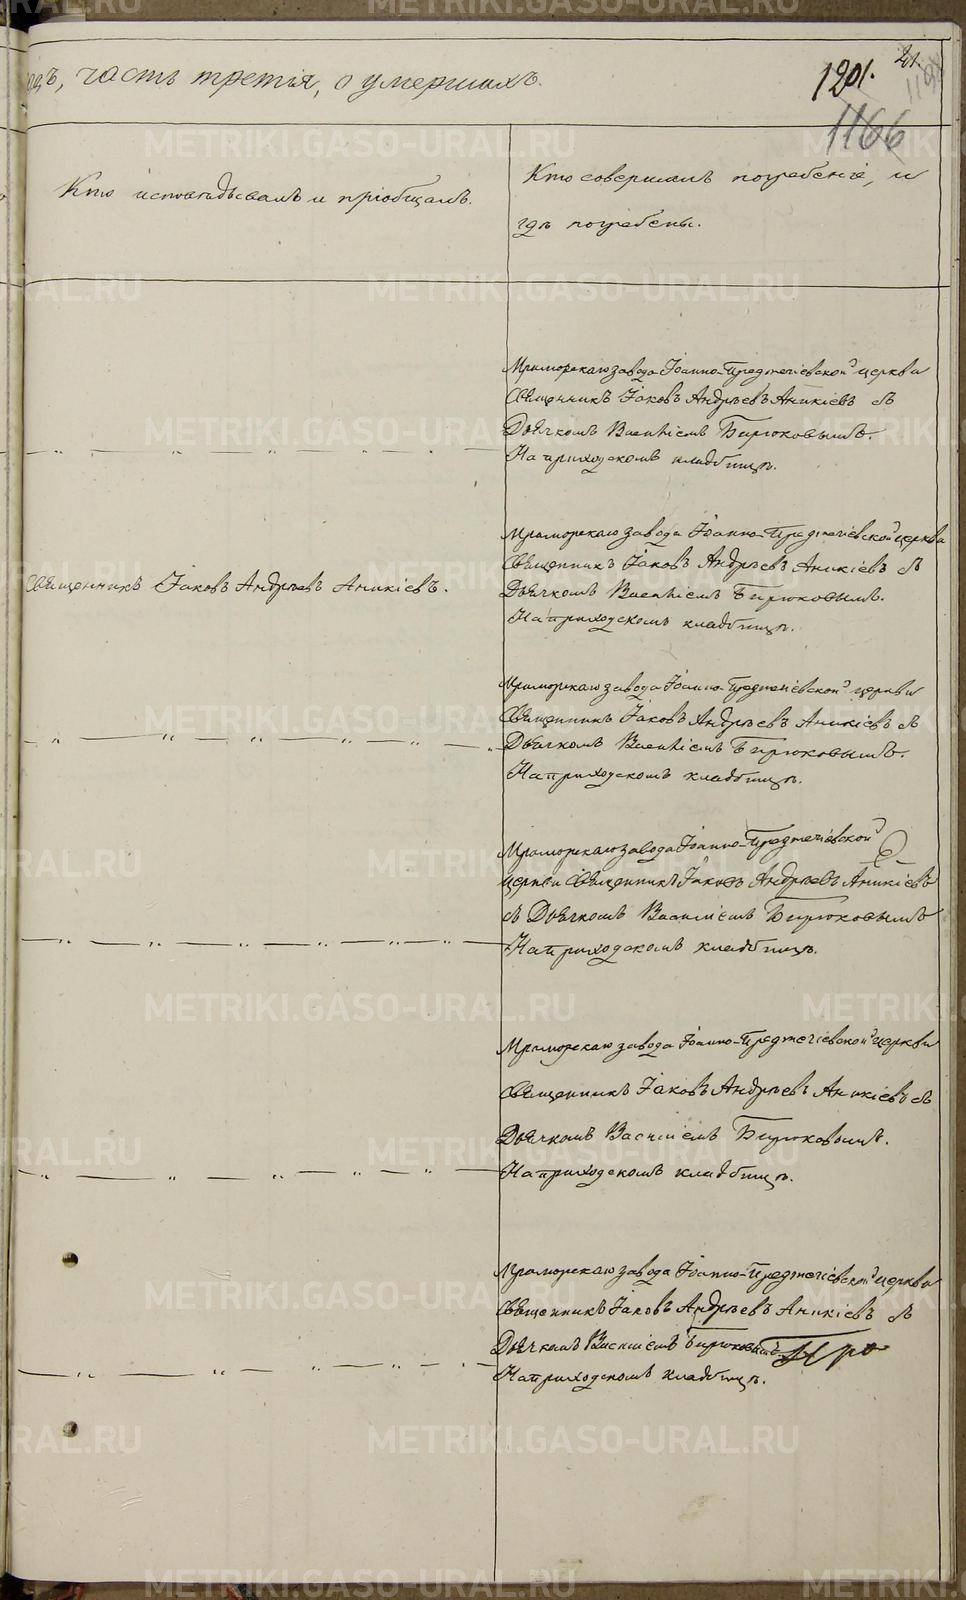 часть третія, о умершихъ.
1201.
21.
1166
Кто исповѣдывалъ и пріобщалъ.
Кто совершалъ погребеніе, и
гдѣ погребены.
Мраморскаго завода Іоанно-Предтечіевской церкви
Священникъ Іаковъ Андрѣевъ Аникіевъ съ
Дьячкомъ Василіемъ Бирюковымъ.
На приходскомъ кладбищѣ.
Мраморскаго завода Іоанно-Предтечіевской церкви
Священникъ Іаковъ Андрѣевъ Аникіевъ съ
Священникъ Іаковъ Андрѣевъ Аникіевъ.
Дьячкомъ Василіемъ Бирюковымъ.
На приходскомъ кладбищѣ.
Мраморскаго завода Іоанно-Предтечіевской церкви
Священникъ Іаковъ Андрѣевъ Аникіевъ съ
Дьячкомъ Василіемъ Бирюковымъ.
На приходскомъ кладбищѣ.
Мраморскаго завода Іоанно-Предтечіевской
церкви Священникъ Іаковъ Андрѣевъ Аникіевъ
съ Дьячкомъ Василіемъ Бирюковымъ
На приходскомъ кладбищѣ.
Мраморскаго завода Іоанно-Предтечіевской церкви
Священникъ Іаковъ Андрѣевъ Аникіевъ съ
Дьячкомъ Василіемъ Бирюковымъ.
На приходскомъ кладбищѣ.
Мраморскаго завода Іоанно-Предтечіевской церкви
Священникъ Іаковъ Андрѣевъ Аникіевъ съ
Дьячкомъ Василіемъ Бирюковымъ
На приходскомъ кладбищѣ.
METRIKI.GASO-URAL.RU